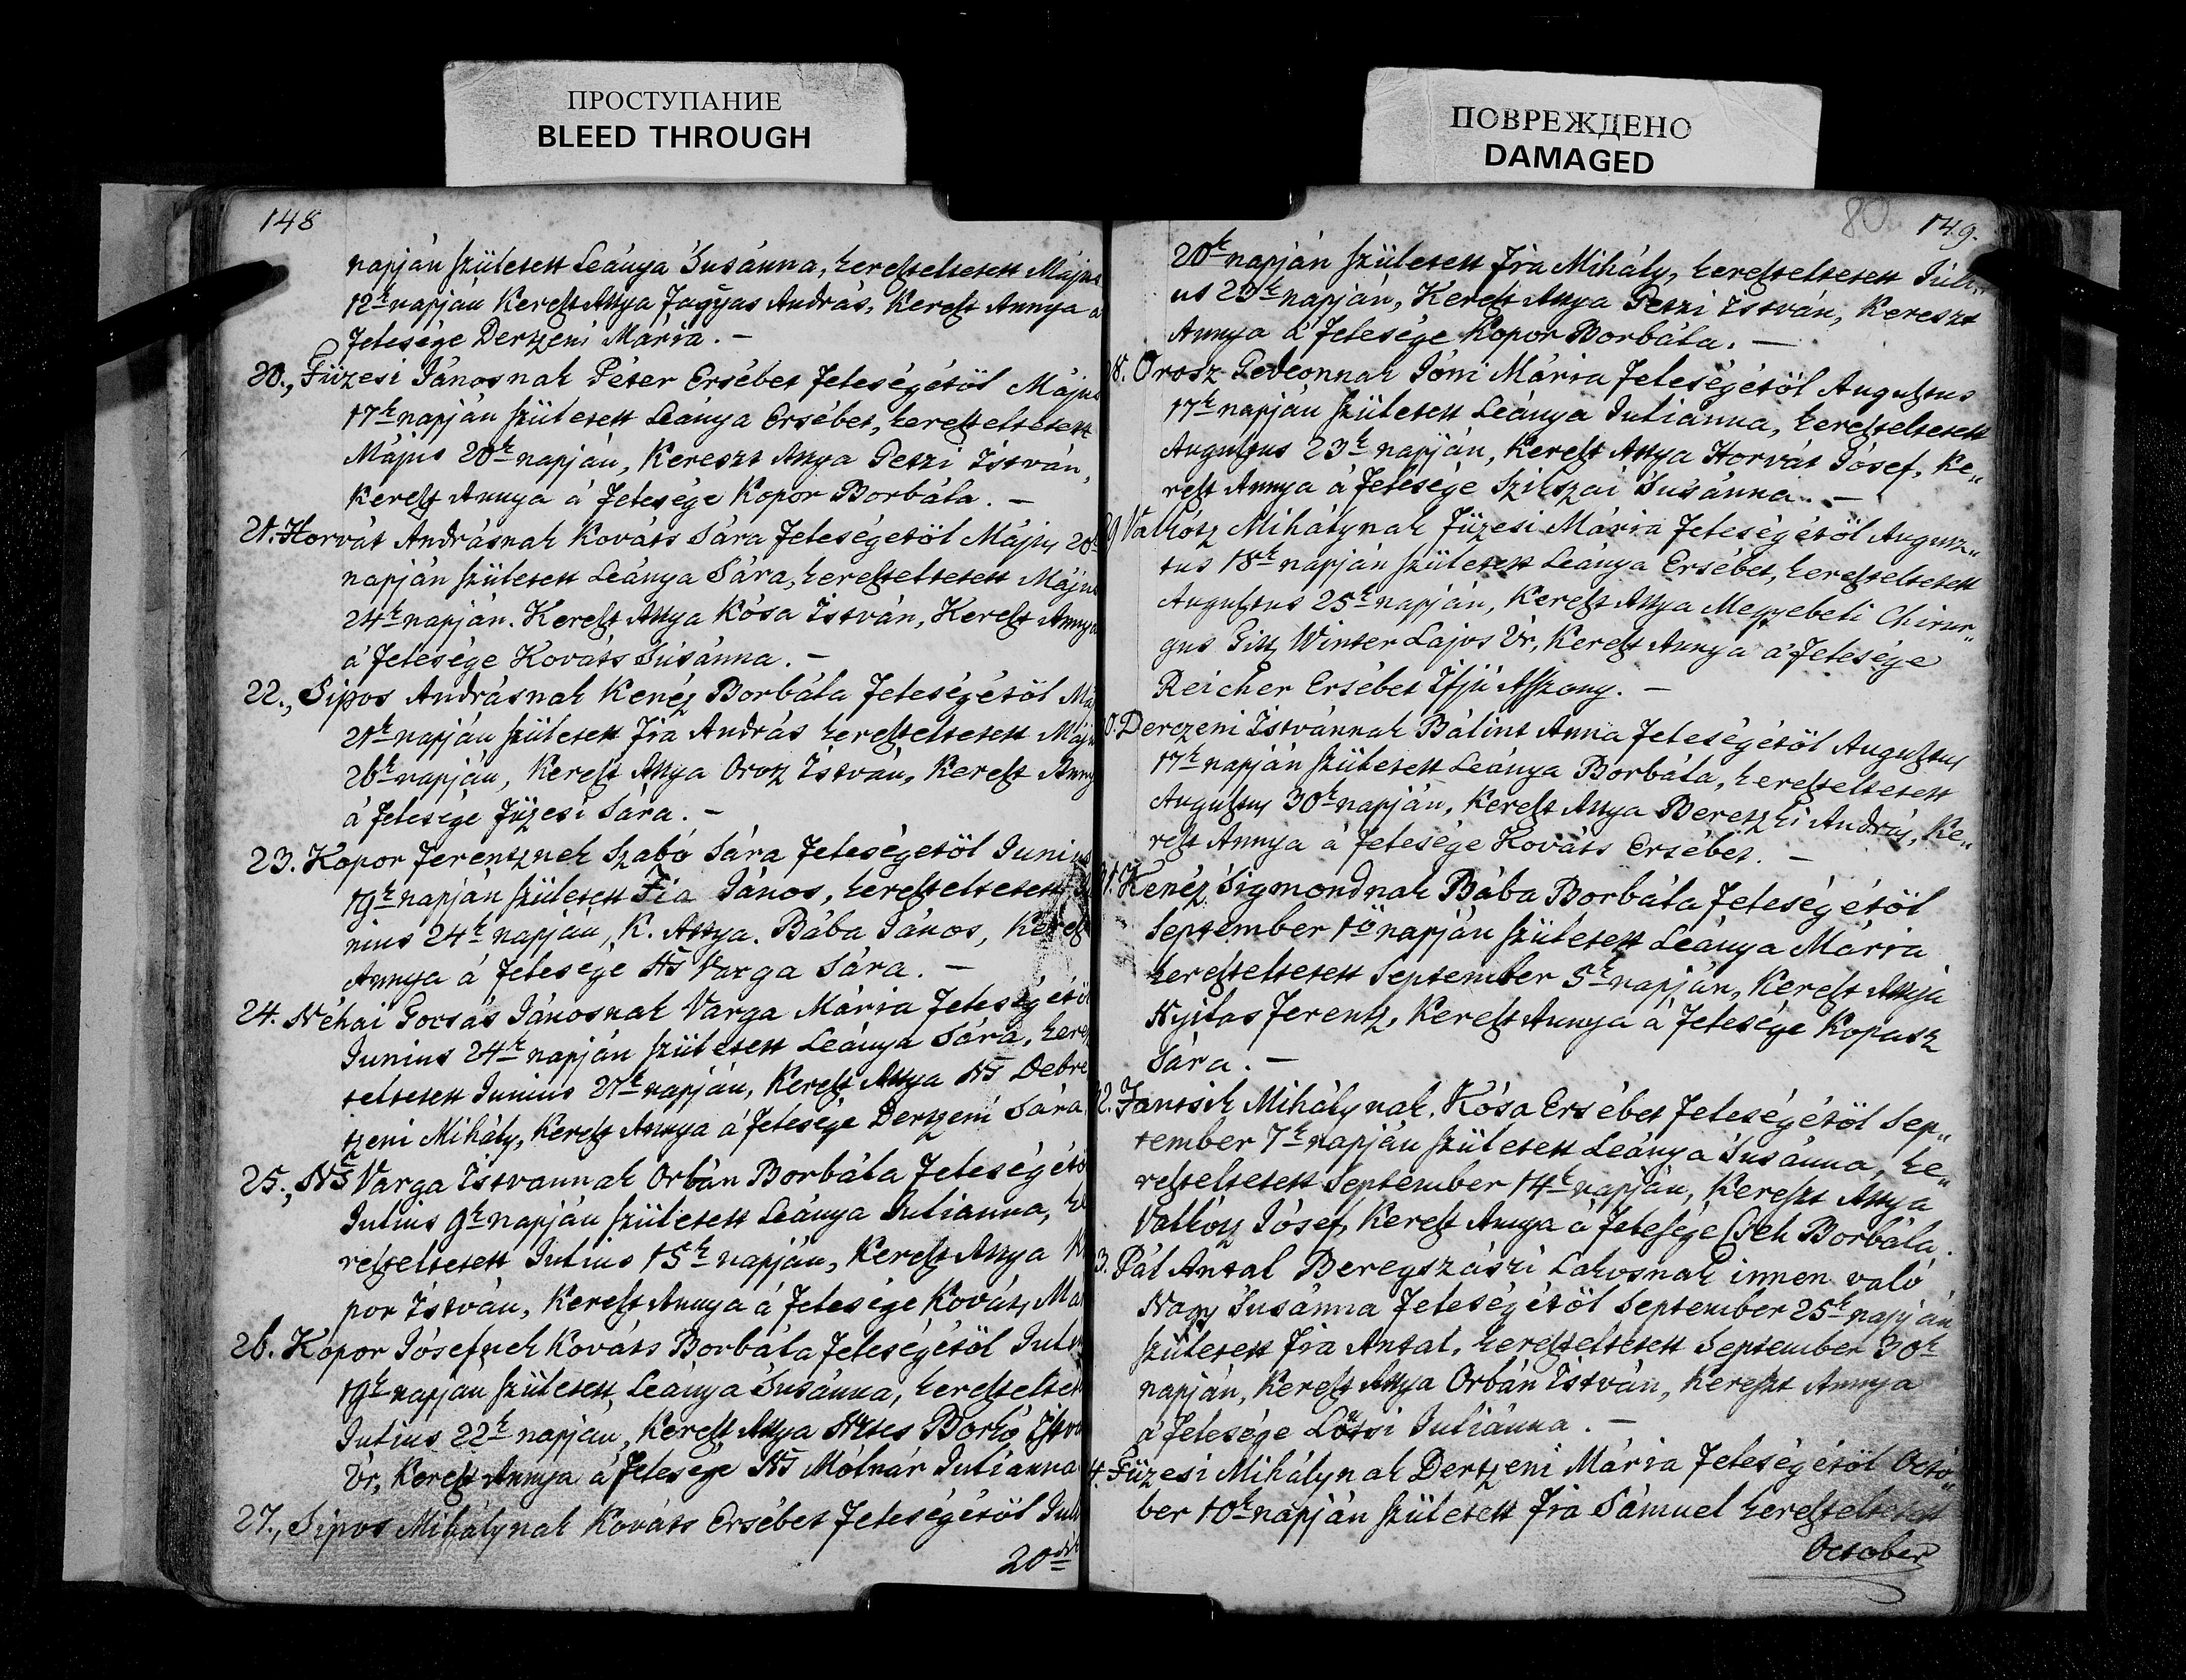 ПРОСТУПАНИЕ
BLEED THROUGH
ПОВРЕЖДЕНО
DAMAGED
148
napján született Leánya Susánna, kereszteltetett Május
12k napján Kereszt Attya Fagyas András, Kereszt Annya a
felesége Dertzeni Mária. –
20., Füzesi Jánosnak Péter Ersébet feleségétöl Május
17k napján született Leánya Ersébet, kereszteltetett
Május 20k napján, Kereszt Attya Petzi István,
Kereszt Annya á felesége Kopor Borbála. –
21. Horvát Andrásnak Kováts Sára feleségétöl Májs 20k
napján született Leánya Sára, kereszteltetett Május
24k napján. Kereszt Attya Kósa István, Kereszt Annya
á felesége Kováts Susánna. –
22., Sipos Andrásnak Kenéz Borbála feleségétöl Má
21k napján született fia András kereszteltetett Máju
26k napján, Kereszt Attya Orosz István, Kereszt Anny
á felesége Füzesi Sára. –
23. Kopor Ferentznek Szabó Sára feleségétöl Junius
19k napján született Fia János, kereszteltetett
nius 24k napján, K. Attya. Bába János, Kereszt
Annya á felesége Ns Varga Sára. –
24. Néhai Gocsás Jánosnak Varga Mária feleségétö
Junius 24k napján született Leánya Sára, keres
teltetett Junius 27k napján, Kereszt Attya Ns Debre
tzeni Mihály, Kereszt Annya á felesége Dertzeni Sára
25., Ns Varga Istvannak Orbán Borbála feleségétö
Julius 9k napján született Leánya Julianna, ke
reszteltetett Julius 15k napján, Kereszt Attya K
por István, Kereszt Annya á felesége Kováts Ma
26. Kopor Jósefnek Kováts Borbála feleségétöl Juli
19k napján született Leánya Susánna, kereszteltet
Julius 22k napján, Kereszt Attya Ntzes Borkó Istv
Úr, Kereszt Annya á felesége Ns Mólnár Juliánna
27., Sipos Mihálynak Kováts Ersébet feleségétöl Juli
20dik
80 149.
20k napján született fia Mihály, kereszteltetett Juli
us 23k napján, Kereszt Attya Petzi István, Kereszt
Annya á felesége Kopor Borbála. –
28. Orosz Gedeonnak Jóni Mária feleségétöl Augusztus
17k napján született Leánya Julianna, kereszteltetett
Augusztus 23k napján, Kereszt Attya Horvát Jósef, Ke„
reszt Annya á felesége Szilszai Susánna. –
9 Valkósz Mihálynak Füzesi Mária feleségétöl Augusz„
tus 18k napján született Leánya Ersébet, kereszteltetett
Augusztus 25k napján, Kereszt Attya Megyebeli Chirur„
gus Titt. Winter Lajos Úr, Kereszt Annya á felesége
Reicher Ersébet Ifjú Asszony. –
0. Derczeni Istvánnak Bálint Anna feleségétöl Augusztus
17k napján született Leánya Borbála, kereszteltetett
Augusztus 30k napján, Kereszt Attya Beretzki András, Ke„
reszt Annya á felesége Kováts Ersébet. –
1. Kenéz Sigmondnak Bába Borbála feleségétöl
September 1ö napján született Leánya Mária
kereszteltetett September 5k napján, Kereszt Attyja
Nyilas Ferentz, Kereszt Annya á felesége Kopasz
Sára. –
2. Jantsik Mihálynak Kósa Ersébet feleségétöl Sep„
tember 7k napján született Leánya Susánna, ke„
reszteltetett September 14k napján, Kereszt Attya
Valkósz Jósef, Kereszt Annya á felesége Cseh Borbála.
3. Pál Antal Beregszászi Lakosnak innen való
Nagy Susánna feleségétöl September 25k napján
született fia Antal, kereszteltetett September 30k
napján, Kereszt Attya Orbán István, Kereszt Annya
á felesége Lötsi Juliánna. –
4. Füzesi Mihálynak Dertzeni Mária feleségétöl Octo„
ber 10k napján született fia Sámuel kereszteltetett
October